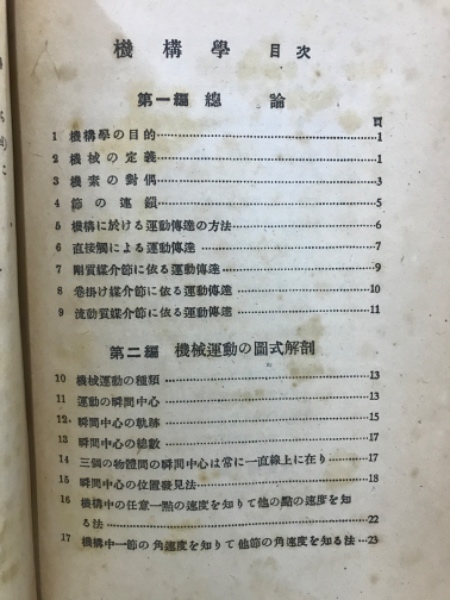 機構學 目次
第一編 總論
頁
1 機構學の目的……1
2 機械の定義……1
3 機素の對偶……3
4 節の連鎖……5
5 機構に於ける運動傳達の方法……6
6 直接觸による運動傳達……7
7 剛質媒介節に依る運動傳達……9
8 卷掛け媒介節に依る運動傳達……10
9 流動質媒介節に依る運動傳達……11
第二編 機械運動の圖式解剖
10 機械運動の種類……13
11 運動の瞬間中心……13
12 瞬間中心の軌跡……15
13 瞬間中心の總數……17
14 三個の物體間の瞬間中心は常に一直線上に在り……17
15 瞬間中心の位置發見法……18
16 機構中の任意一點の速度を知りて他の點の速度を知
る法……22
17 機構中一節の角速度を知りて他節の角速度を知る法…23